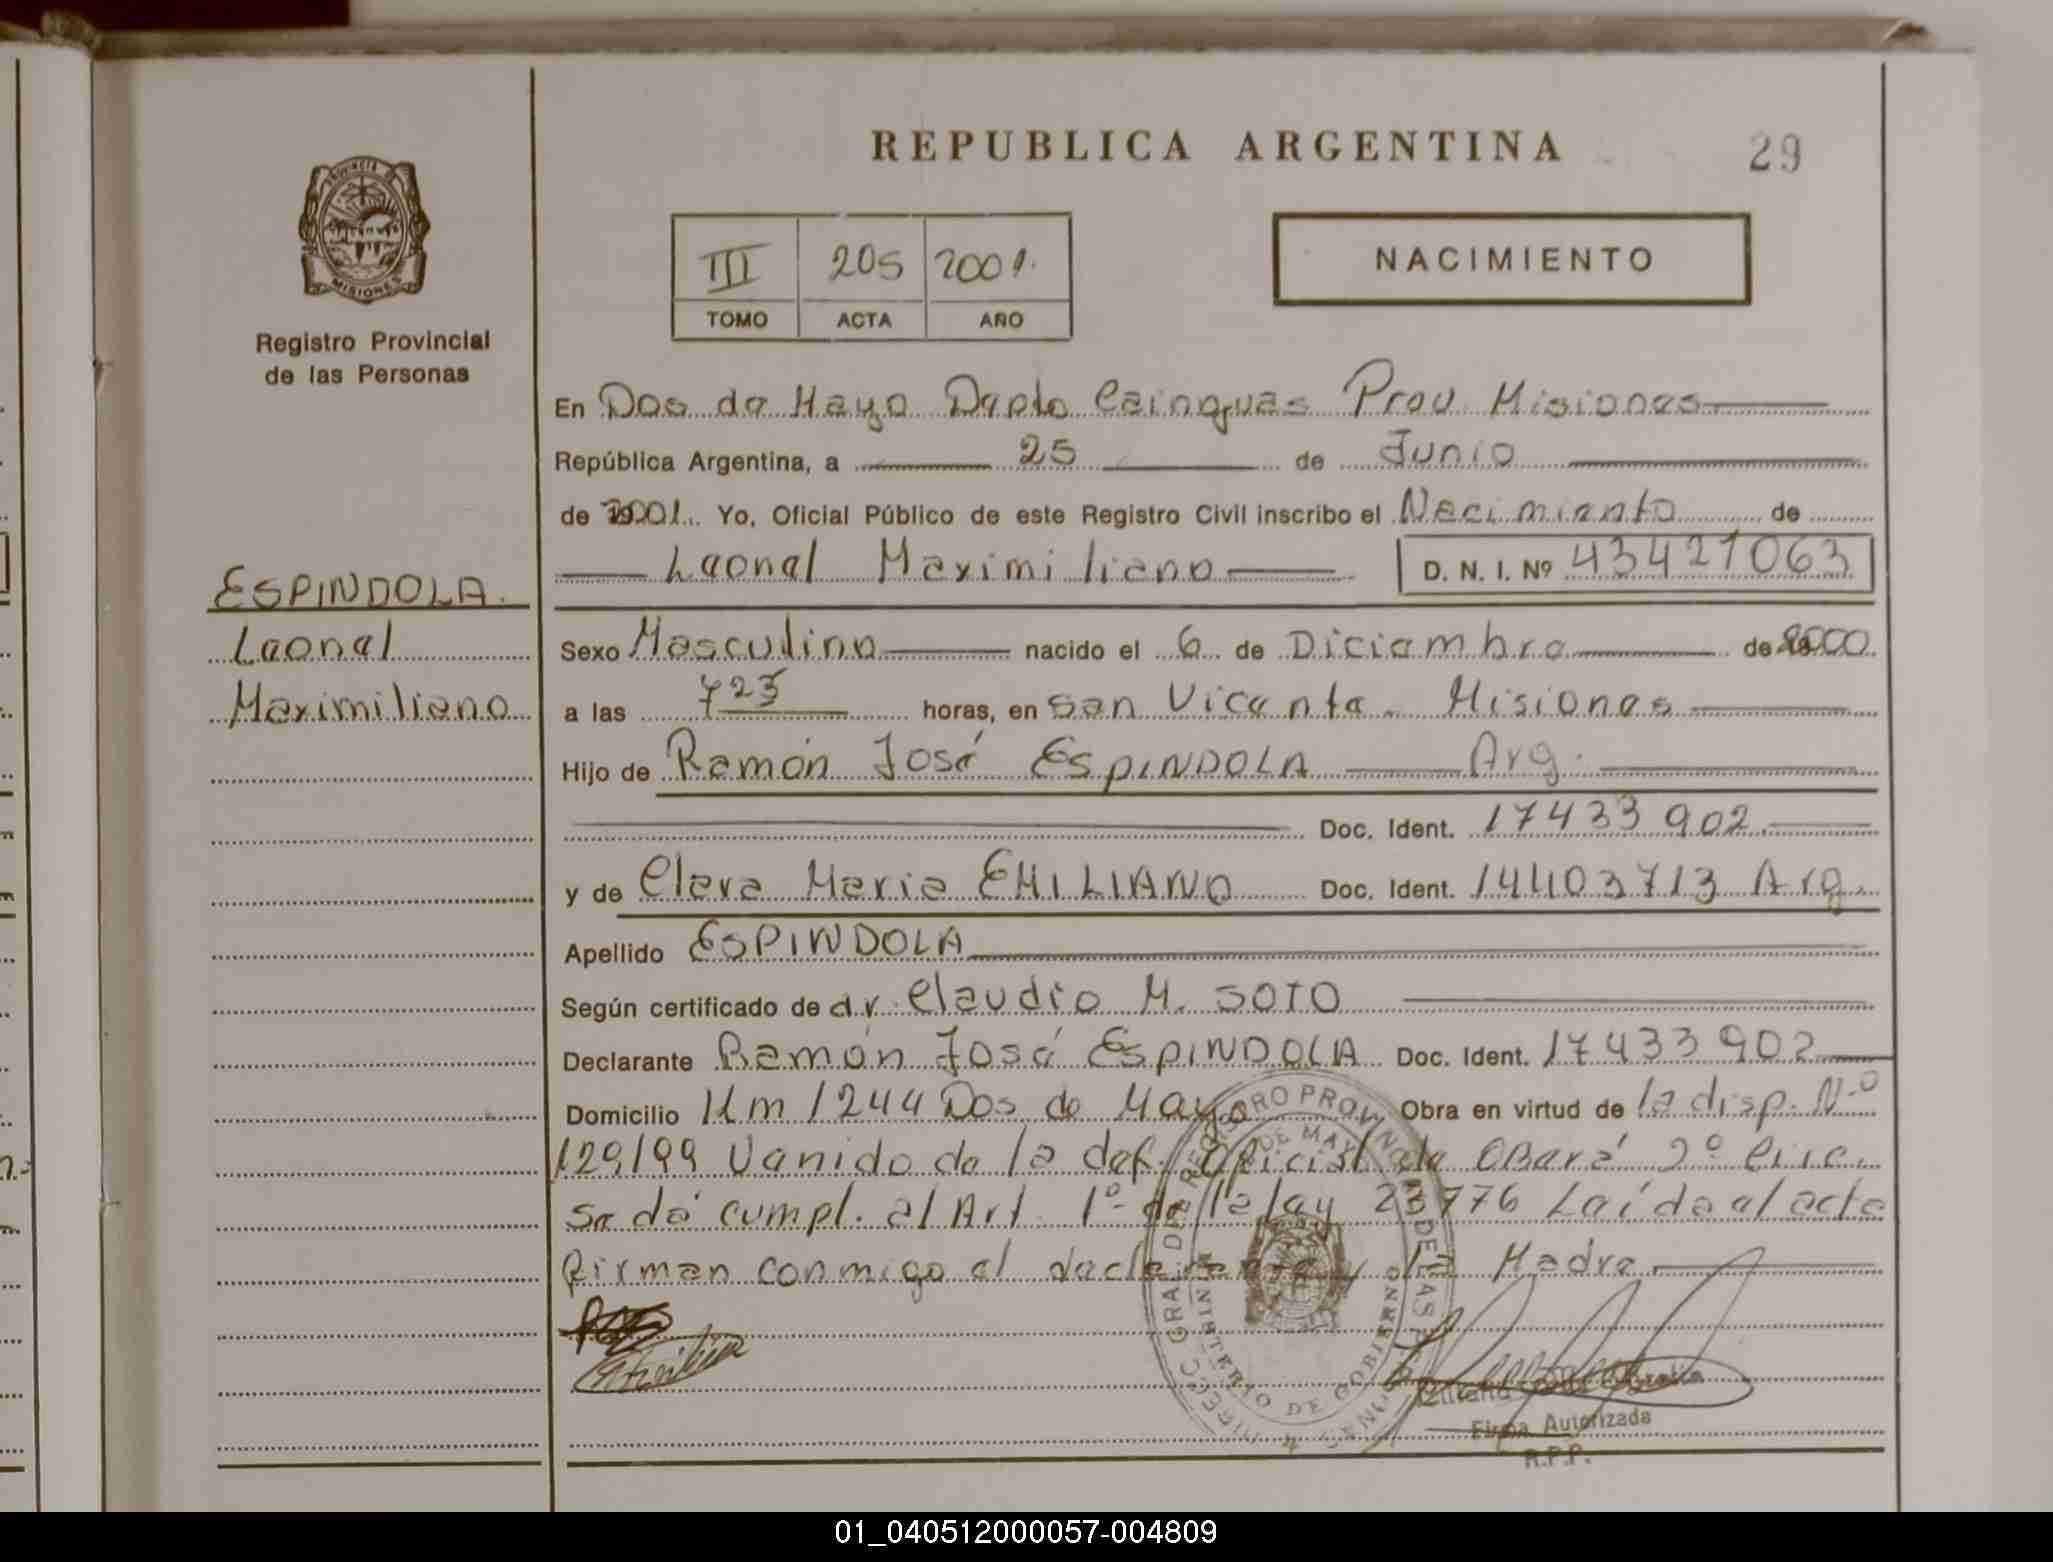 REPUBLICA ARGENTINA
29
PROVINCIA DE
MISIONES
Registro Provincial
de las Personas
III 205 2001.
TOMO ACTA AÑO
NACIMIENTO
En Dos de Mayo Depto Cainguas Prov. Misiones
República Argentina, a 25 de Junio
de 2001. Yo, Oficial Público de este Registro Civil inscribo el Nacimiento de
Leonel Maximiliano D. N. I. Nº 43421063
ESPINDOLA.
Leonel
Maximiliano
Sexo Masculino nacido el 6 de Diciembre de 2000
a las 723 horas, en San Vicente. Misiones
Hijo de Ramón José ESPINDOLA Arg.
Doc. Ident. 17433902
y de Clara Maria EMILIANO Doc. Ident. 14403713 Arg.
Apellido ESPINDOLA
Según certificado de dr. Claudio M. SOTO
Declarante Ramón José ESPINDOLA Doc. Ident. 17433902
Domicilio Km 1244 Dos de Mayo Obra en virtud de la disp. Nº
129/99 Venido de la def. Oficial de Oberá 2º Circ.
se dá cumpl. al Art. 1º de la ley 23776 Leída el acta
firman conmigo el declarante y la Madre
Firma Autorizada
R.P.P.
DIRECC GRAL DEL REGISTRO PROVINCIAL DE LAS PERSONAS
DOS DE MAYO
MINISTERIO DE GOBIERNO
01_040512000057-004809